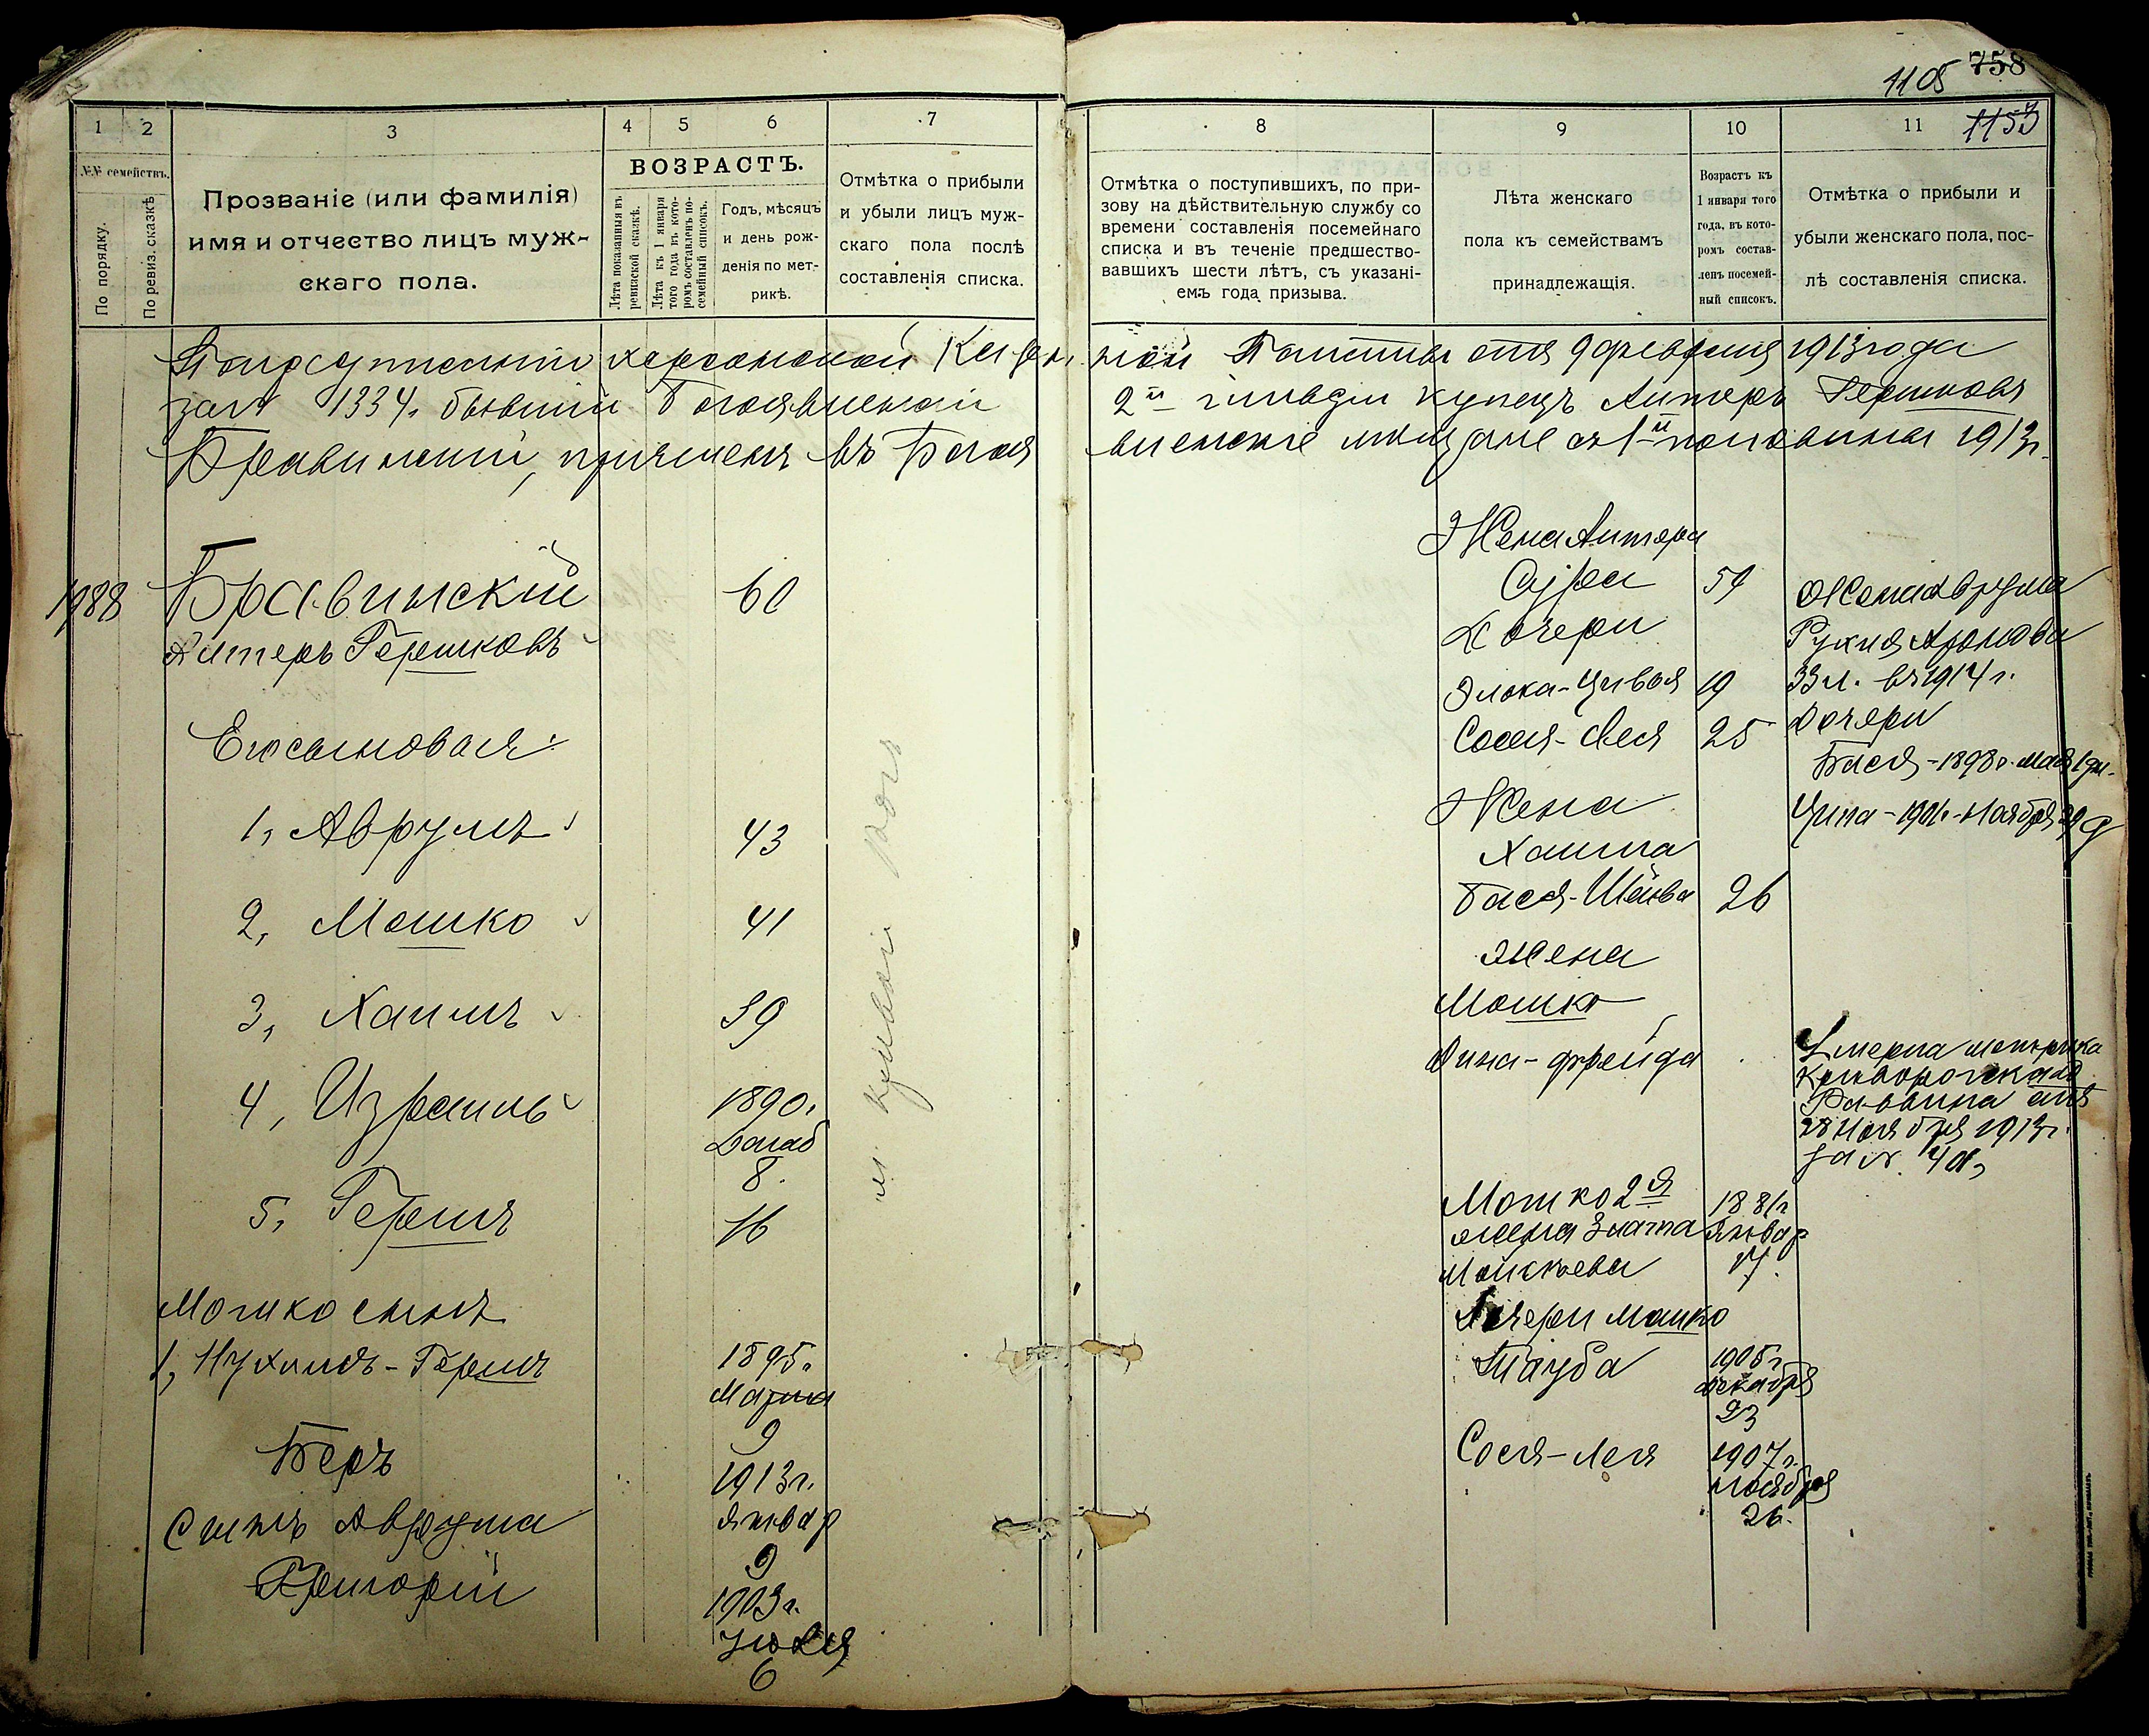 758
1105
1153
1
2
3
4
5
6
7
№№ семействъ.
По порядку.
По ревиз. сказкѣ
Прозваніе (или фамилія)
имя и отчество лицъ муж-
скаго пола.
ВОЗРАСТЪ.
Лѣта показанныя въ
ревизской сказкѣ.
Лѣта къ 1 января
того года къ кото-
ромъ составленъ по-
семейный списокъ.
Годъ, мѣсяцъ
и день рож-
денія по мет-
рикѣ.
Отмѣтка о прибыли
и убыли лицъ муж-
скаго пола послѣ
составленія списка.
8
9
10
11
Отмѣтка о поступившихъ, по при-
зову на дѣйствительную службу со
времени составленія посемейнаго
списка и въ теченіе предшество-
вавшихъ шести лѣтъ, съ указані-
емъ года призыва.
Лѣта женскаго
пола къ семействамъ
принадлежащія.
Возрастъ къ
1 января того
года, въ кото-
ромъ состав-
ленъ посемей-
ный списокъ.
Отмѣтка о прибыли и
убыли женскаго пола, пос-
лѣ составленія списка.
херсонской Казен ной Палаты отъ 9 февраля 1913 года
за № 1334. бывшій Богоявленскій 2й гильдіи купецъ Литеръ Гершковъ
Бравинскій, причисленъ въ Богоя вленскіе мѣщане съ 1й половины 1913г.
1988
Бравинскій
60
Литеръ Гершковъ
Его сыновья:
1, Аврумъ
43
2, Мошко
41
3, Хаимъ
39
4, Израиль
1890г.
8.
5, Гершъ
16
Мошко сынъ
1, Нухимъ-Гершъ
1895г.
Марта
9
Беръ
1913г.
Январ
9
Сынъ Аврума
Григорій
1903г.
Іюля
6
м. Кривой Рогъ
Жена Литера
Сура
54
Дочери
Элока-Цивья
19
Сося-Лея
25
Жена
Хаима
Бася-Шейва
26
Жена
Мошко
Дина-Фрейда
Мошко 2я
1881г
жена Злата
Январ
17.
Дочери Мошко
Тауба
1905г
декабря
23
Сося-Лея
1907г.
ноября
26.
Жена Аврума
Рухля Аронова
33 л. въ 1914 г.
Дочери
Бася-1898г. мая 1 дн.
Ципа-1901г. Ноября 29 д
Умерла метрика
Криворогскаго
Раввина отъ
28 Ноября 1913г.
за №. 401